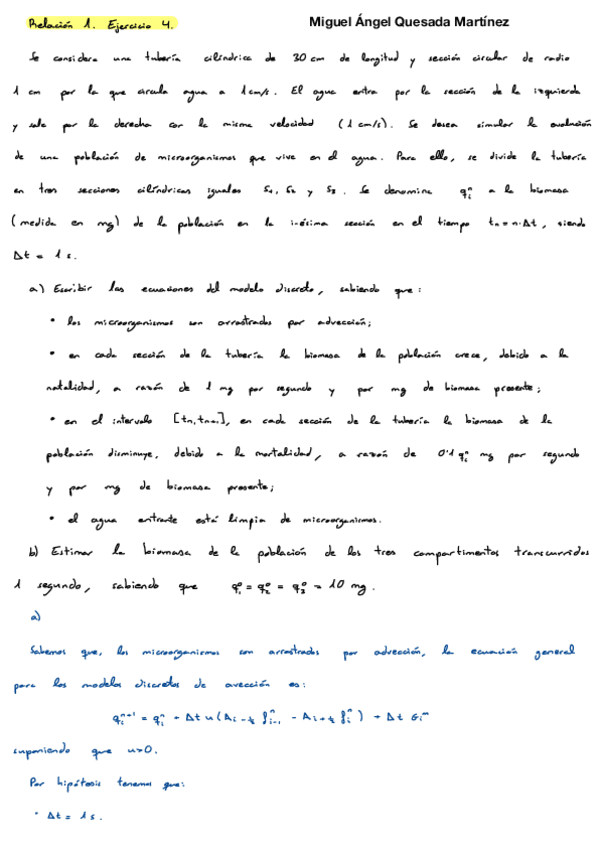 Relación 1. Ejercicio 4. Miguel Ángel Quesada Martínez
Se considera una tubería cilíndrica de 30 cm de longitud y sección circular de radio
1 cm por la que circula agua a 1 cm/s. El agua entra por la sección de la izquierda
y sale por la derecha con la misma velocidad (1 cm/s). Se desea simular la evolución
de una población de microorganismos que vive en el agua. Para ello, se divide la tubería
en tres secciones cilíndricas iguales S₁, S₂ y S₃. Se denomina qᵢⁿ a la biomasa
(medida en mg) de la población en la i-ésima sección en el tiempo tₙ = n·Δt, siendo
Δt = 1 s.
a) Escribir las ecuaciones del modelo discreto, sabiendo que:
• los microorganismos son arrastrados por advección;
• en cada sección de la tubería la biomasa de la población crece, debido a la
natalidad, a razón de 1 mg por segundo y por mg de biomasa presente;
• en el intervalo [tₙ, tₙ₊₁], en cada sección de la tubería la biomasa de la
población disminuye, debido a la mortalidad, a razón de 0'1 qᵢⁿ mg por segundo
y por mg de biomasa presente;
• el agua entrante está limpia de microorganismos.
b) Estimar la biomasa de la población de los tres compartimentos transcurridos
1 segundo, sabiendo que q₁⁰ = q₂⁰ = q₃⁰ = 10 mg.
a)
Sabemos que, los microorganismos son arrastrados por advección, la ecuación general
para los modelos discretos de avección es:
qᵢⁿ⁺¹ = qᵢⁿ + Δt u (Aᵢ₋½ fᵢ₋₁ⁿ - Aᵢ₊½ fᵢⁿ) + Δt Gᵢⁿ
suponiendo que u>0.
Por hipótesis tenemos que:
• Δt = 1 s.